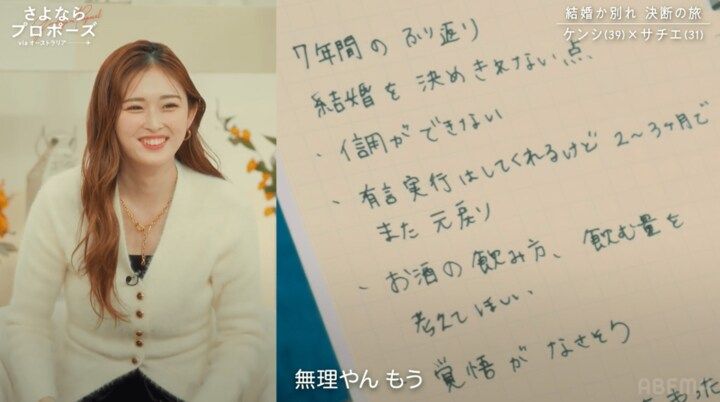 さよなら
プロポーズ
via オーストラリア
結婚か別れ 決断の旅
ケンシ(39)×サチエ(31)
7年間の ふり返り
結婚を 決めきれない点
・信調ができない
・有言実行はしてくれるけど 2〜3ヶ月で
また 元戻り
・お酒の飲み方、飲む量を
考えてほしい
覚悟が なさそう
無理やん もう
ABEMA